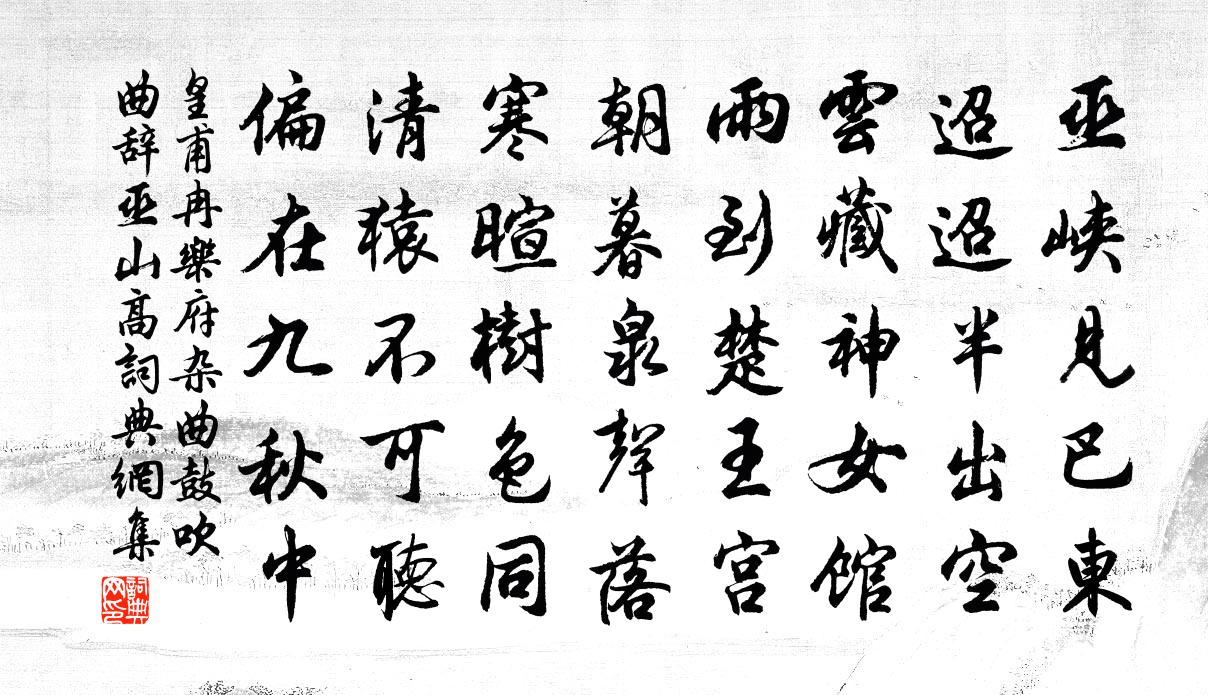 巫峽見巴東
迢迢半出空
雲藏神女館
雨到楚王宮
朝暮泉聲落
寒暄樹色同
清猿不可聽
偏在九秋中
皇甫冉樂府杂曲鼓吹
曲辞巫山高詞典網集
詞典网印